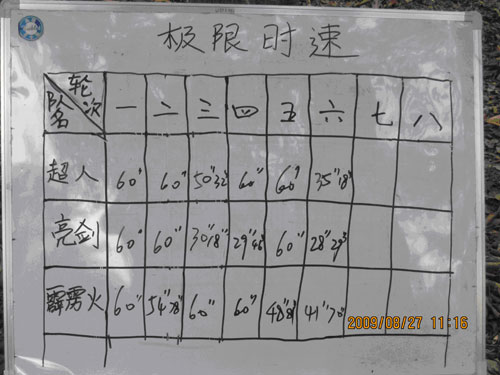 极限时速
轮次 队名 一 二 三 四 五 六 七 八
超人 60" 60" 50"32 60" 60" 35"18
亮剑 60" 60" 30"18 60"
霹雳火 60" 54"78 60" 60" 41"70
2009/08/27 11:16